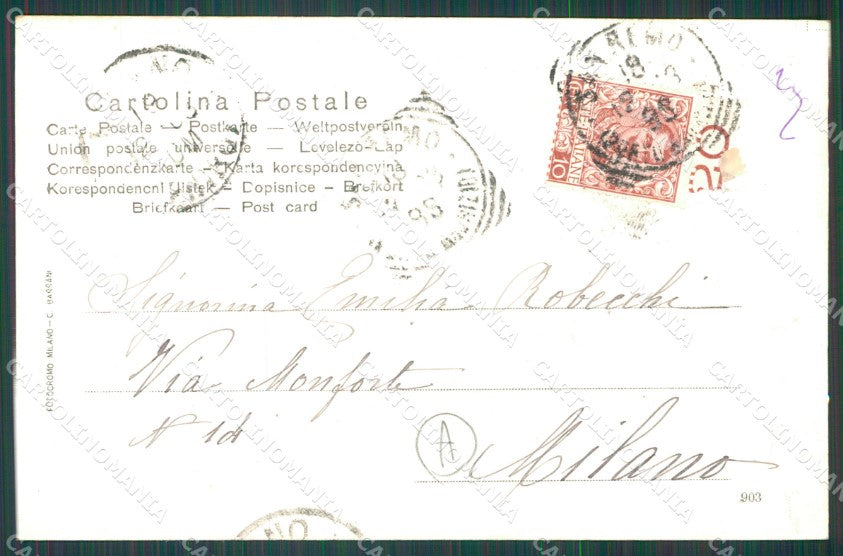 Cartolina Postale
Carte Postale — Postkarte — Weltpostverein
Union postale universelle — Levelezö-Lap
Correspondenzkarte — Karta korespondencyjna
Korespondencní lístek — Dopisnice — Brefkort
Briefkaart — Post card
SAN REMO
18
10
20
Signorina Emilia Robecchi
Via Monforte
N 14
A
Milano
903
FOTOCROMO MILANO — C. BASSANI
CARTOLINOMANIA